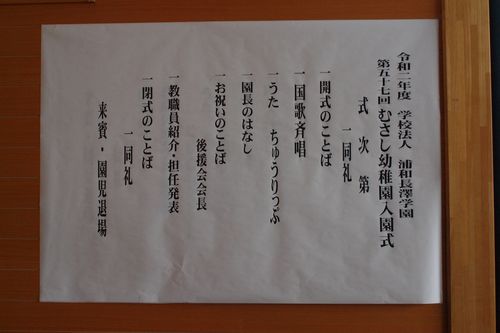 令和二年度　学校法人　浦和長澤学園
第五十七回 むさし幼稚園入園式
式次第
一同礼
一開式のことば
一国歌斉唱
一うた　ちゅうりっぷ
一園長のはなし
一お祝いのことば
後援会会長
一教職員紹介・担任発表
一閉式のことば
一同礼
来賓・園児退場